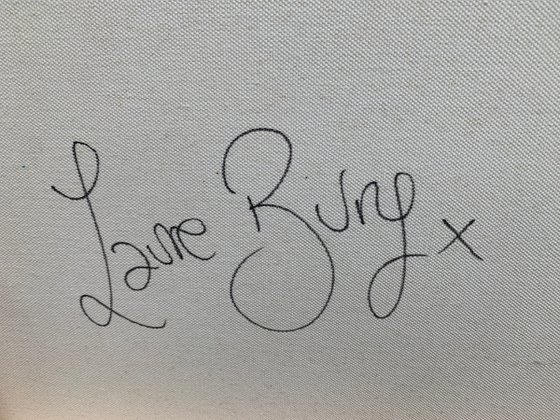 Laure Bury x